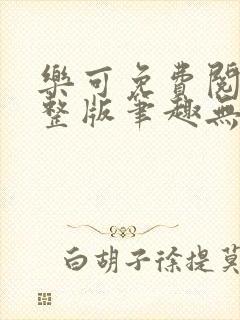 樂可免費閱
整版筆趣無
白胡子徐提莫